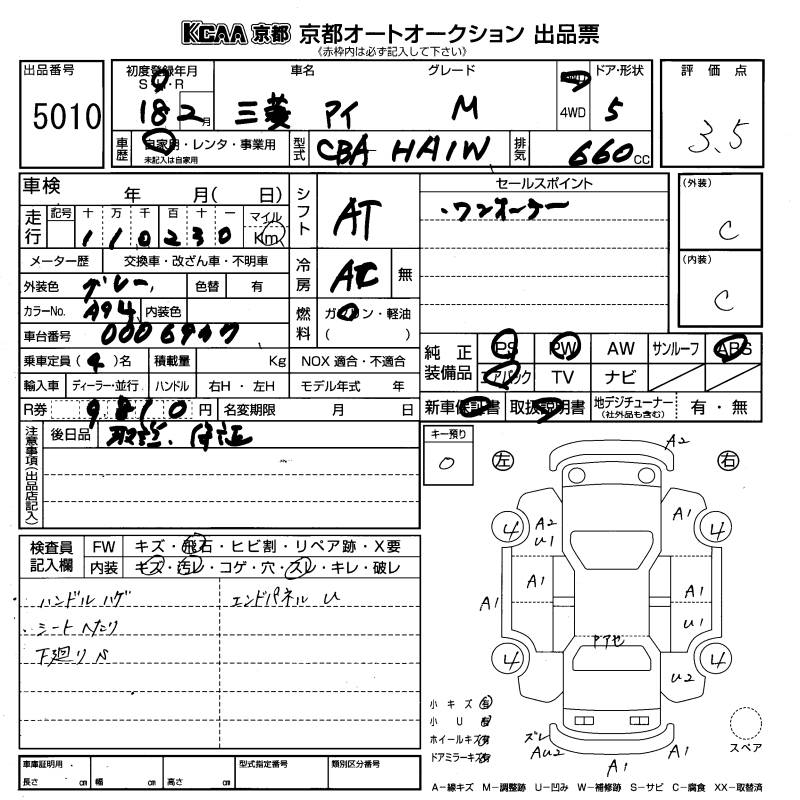 KCAA 京都 京都オートオークション 出品票
《赤枠内は必ず記入して下さい》
出品番号 初度登録年月 車名 グレード ドア・形状 評価点
5010 18 2月 三菱 アイ M 4WD 5 3.5
車歴 自家用・レンタ・事業用 未記入は自家用 型式 CBA HA1W 排気 660 cc
車検 年 月( 日) シフト AT セールスポイント (外装) C
・ワンオーナー
走行 記号 十 万 千 百 十 一 マイル
110230 Km
メーター歴 交換車・改ざん車・不明車 冷房 AC 無 (内装) C
外装色 グレー 色替 有
カラーNo. A94 内装色 燃料 ガソリン・軽油
( )
車台番号
乗車定員 (4)名 積載量 Kg NOX 適合・不適合
純正装備品 PS PW AW サンルーフ ABS
エアバック TV ナビ
輸入車 ディーラー・並行 ハンドル 右H・左H モデル年式 年
R券 9810円 名変期限 月 日
新車保証書 取扱説明書 地デジチューナー (社外品も含む) 有・無
注意事項(出品店記入) 後日品 取説、保証
キー預り 0
左 右
A2
4 A2 U1 A1 4
A1 A1 A1 U1
アアセ
4 U2 4
検査員記入欄 FW キズ・飛石・ヒビ割・リペア跡・X要
内装 キズ・汚レ・コゲ・穴・スレ・キレ・破レ
・ハンドルハゲ エンドパネル U
・シートヘたり
下廻りS
小キズ 有
小U 有
ホイールキズ 有
ドアミラーキズ 有
ズレ AU2 A1 A1
スペア
車庫証明用・ 長さ cm 幅 cm 高さ cm 型式指定番号 類別区分番号
A−線キズ M−調整跡 U−凹み W−補修跡 S−サビ C−腐食 XX−取替済